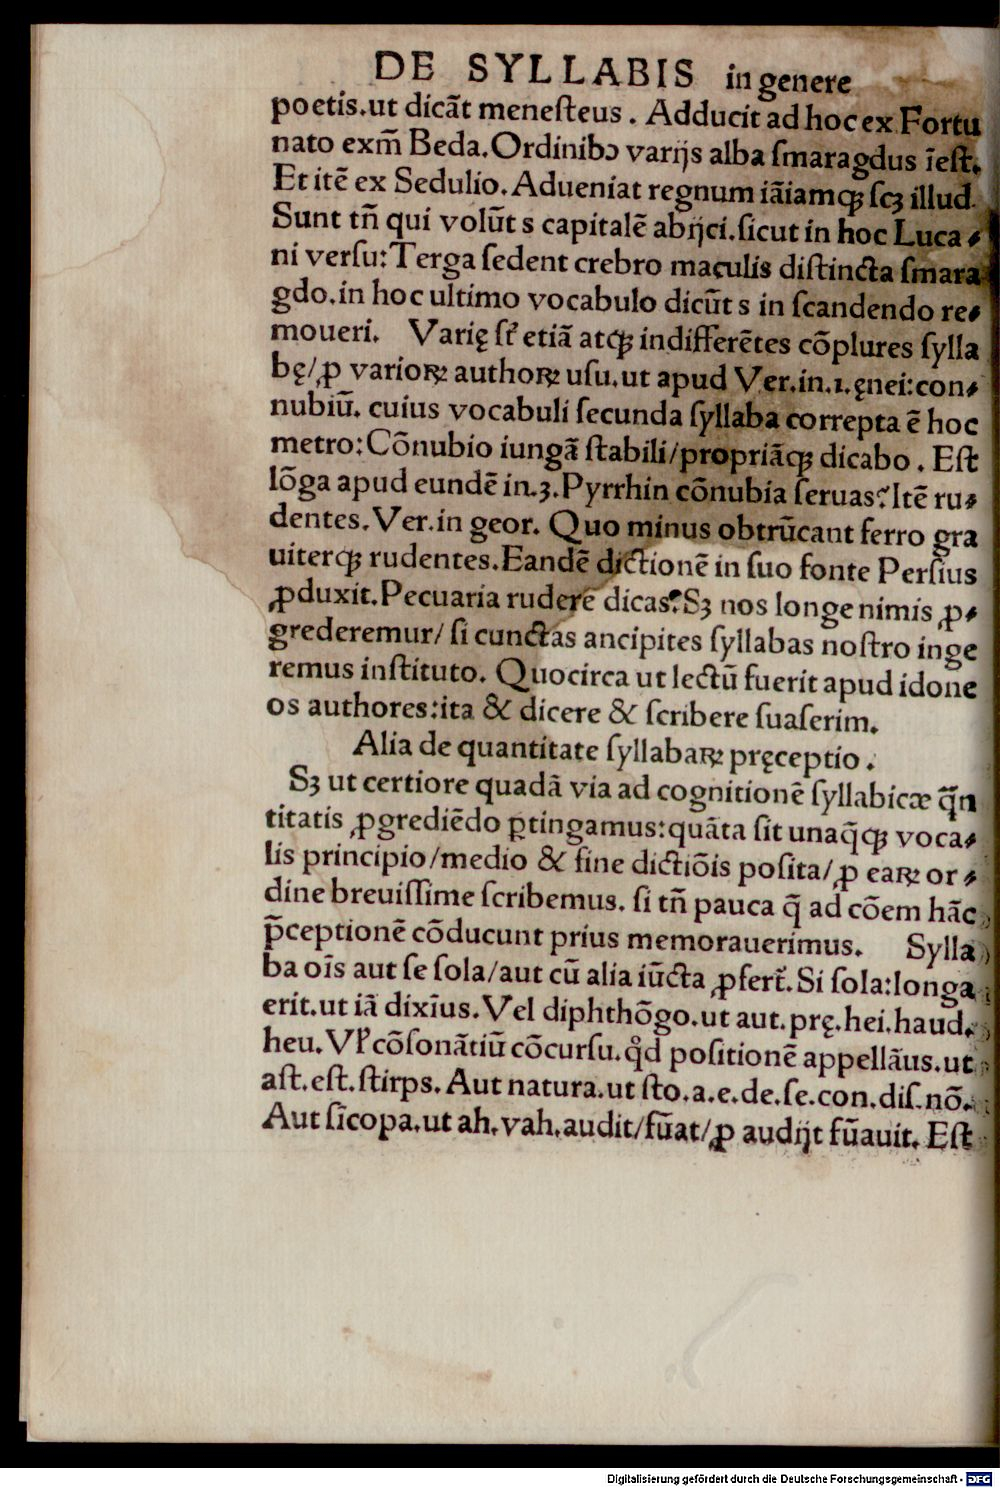 DE SYLLABIS in genere
poetis.ut dicāt menesteus. Adducit ad hoc ex Fortu
nato exm̄ Beda.Ordinibꝰ varijs alba ſmaragdus īeſt.
Et itē ex Sedulio.Adueniat regnum iāiamqꝫ ſcꝫ illud.
Sunt tn̄ qui volūt s capitalē abijci.ſicut in hoc Luca⸗
ni verſu:Terga ſedent crebro maculis diſtincta ſmara
gdo.in hoc ultimo vocabulo dicūt s in ſcandendo re⸗
moueri. Varię ſt̄ etiā atqꝫ indifferētes cōplures ſylla
bę/ꝓ varioꝝ authoꝝ uſu.ut apud Ver.in.1.ęnei:con⸗
nubiū. cuius vocabuli ſecunda ſyllaba correpta ē hoc
metro:Cōnubio iungā ſtabili/propriāqꝫ dicabo. Eſt
lōga apud eundē in.3.Pyrrhin cōnubia ſeruas?Itē ru⸗
dentes.Ver.in geor. Quo minus obtrūcant ferro gra
uiterqꝫ rudentes.Eandē dictionē in ſuo fonte Perſius
ꝓduxit.Pecuaria ruderē dicas?Sꝫ nos longe nimis ꝓ⸗
grederemur/ ſi cunctas ancipites ſyllabas noſtro inge
remus inſtituto. Quocirca ut lectū fuerit apud idone
os authores:ita & dicere & ſcribere ſuaſerim.
Alia de quantitate ſyllabaꝝ pręceptio.
Sꝫ ut certiore quadā via ad cognitionē ſyllabicæ q̄n
titatis ꝓgrediēdo ꝑtingamus:quāta ſit unaq̄qꝫ voca⸗
lis principio/medio & fine dictiōis poſita/ꝓ eaꝝ or⸗
dine breuiſſime ſcribemus. ſi tn̄ pauca q̄ ad cōem hāc
p̄ceptionē cōducunt prius memorauerimus. Sylla
ba oīs aut ſe ſola/aut cū alia iūcta ꝓfert̄. Si ſola:longa
erit.ut iā dixīus.Vel diphthōgo.ut aut.prę.hei.haud.
heu. Vl̄ cōſonātiū cōcurſu.qd̄ poſitionē appellāus.ut
aſt.eſt.ſtirps. Aut natura.ut ſto.a.e.de.ſe.con.diſ.nō.
Aut ſīcopa.ut ah.vah.audit/fūat/ꝓ audijt fūauit. Eſt
Digitalisierung gefördert durch die Deutsche Forschungsgemeinschaft - DFG